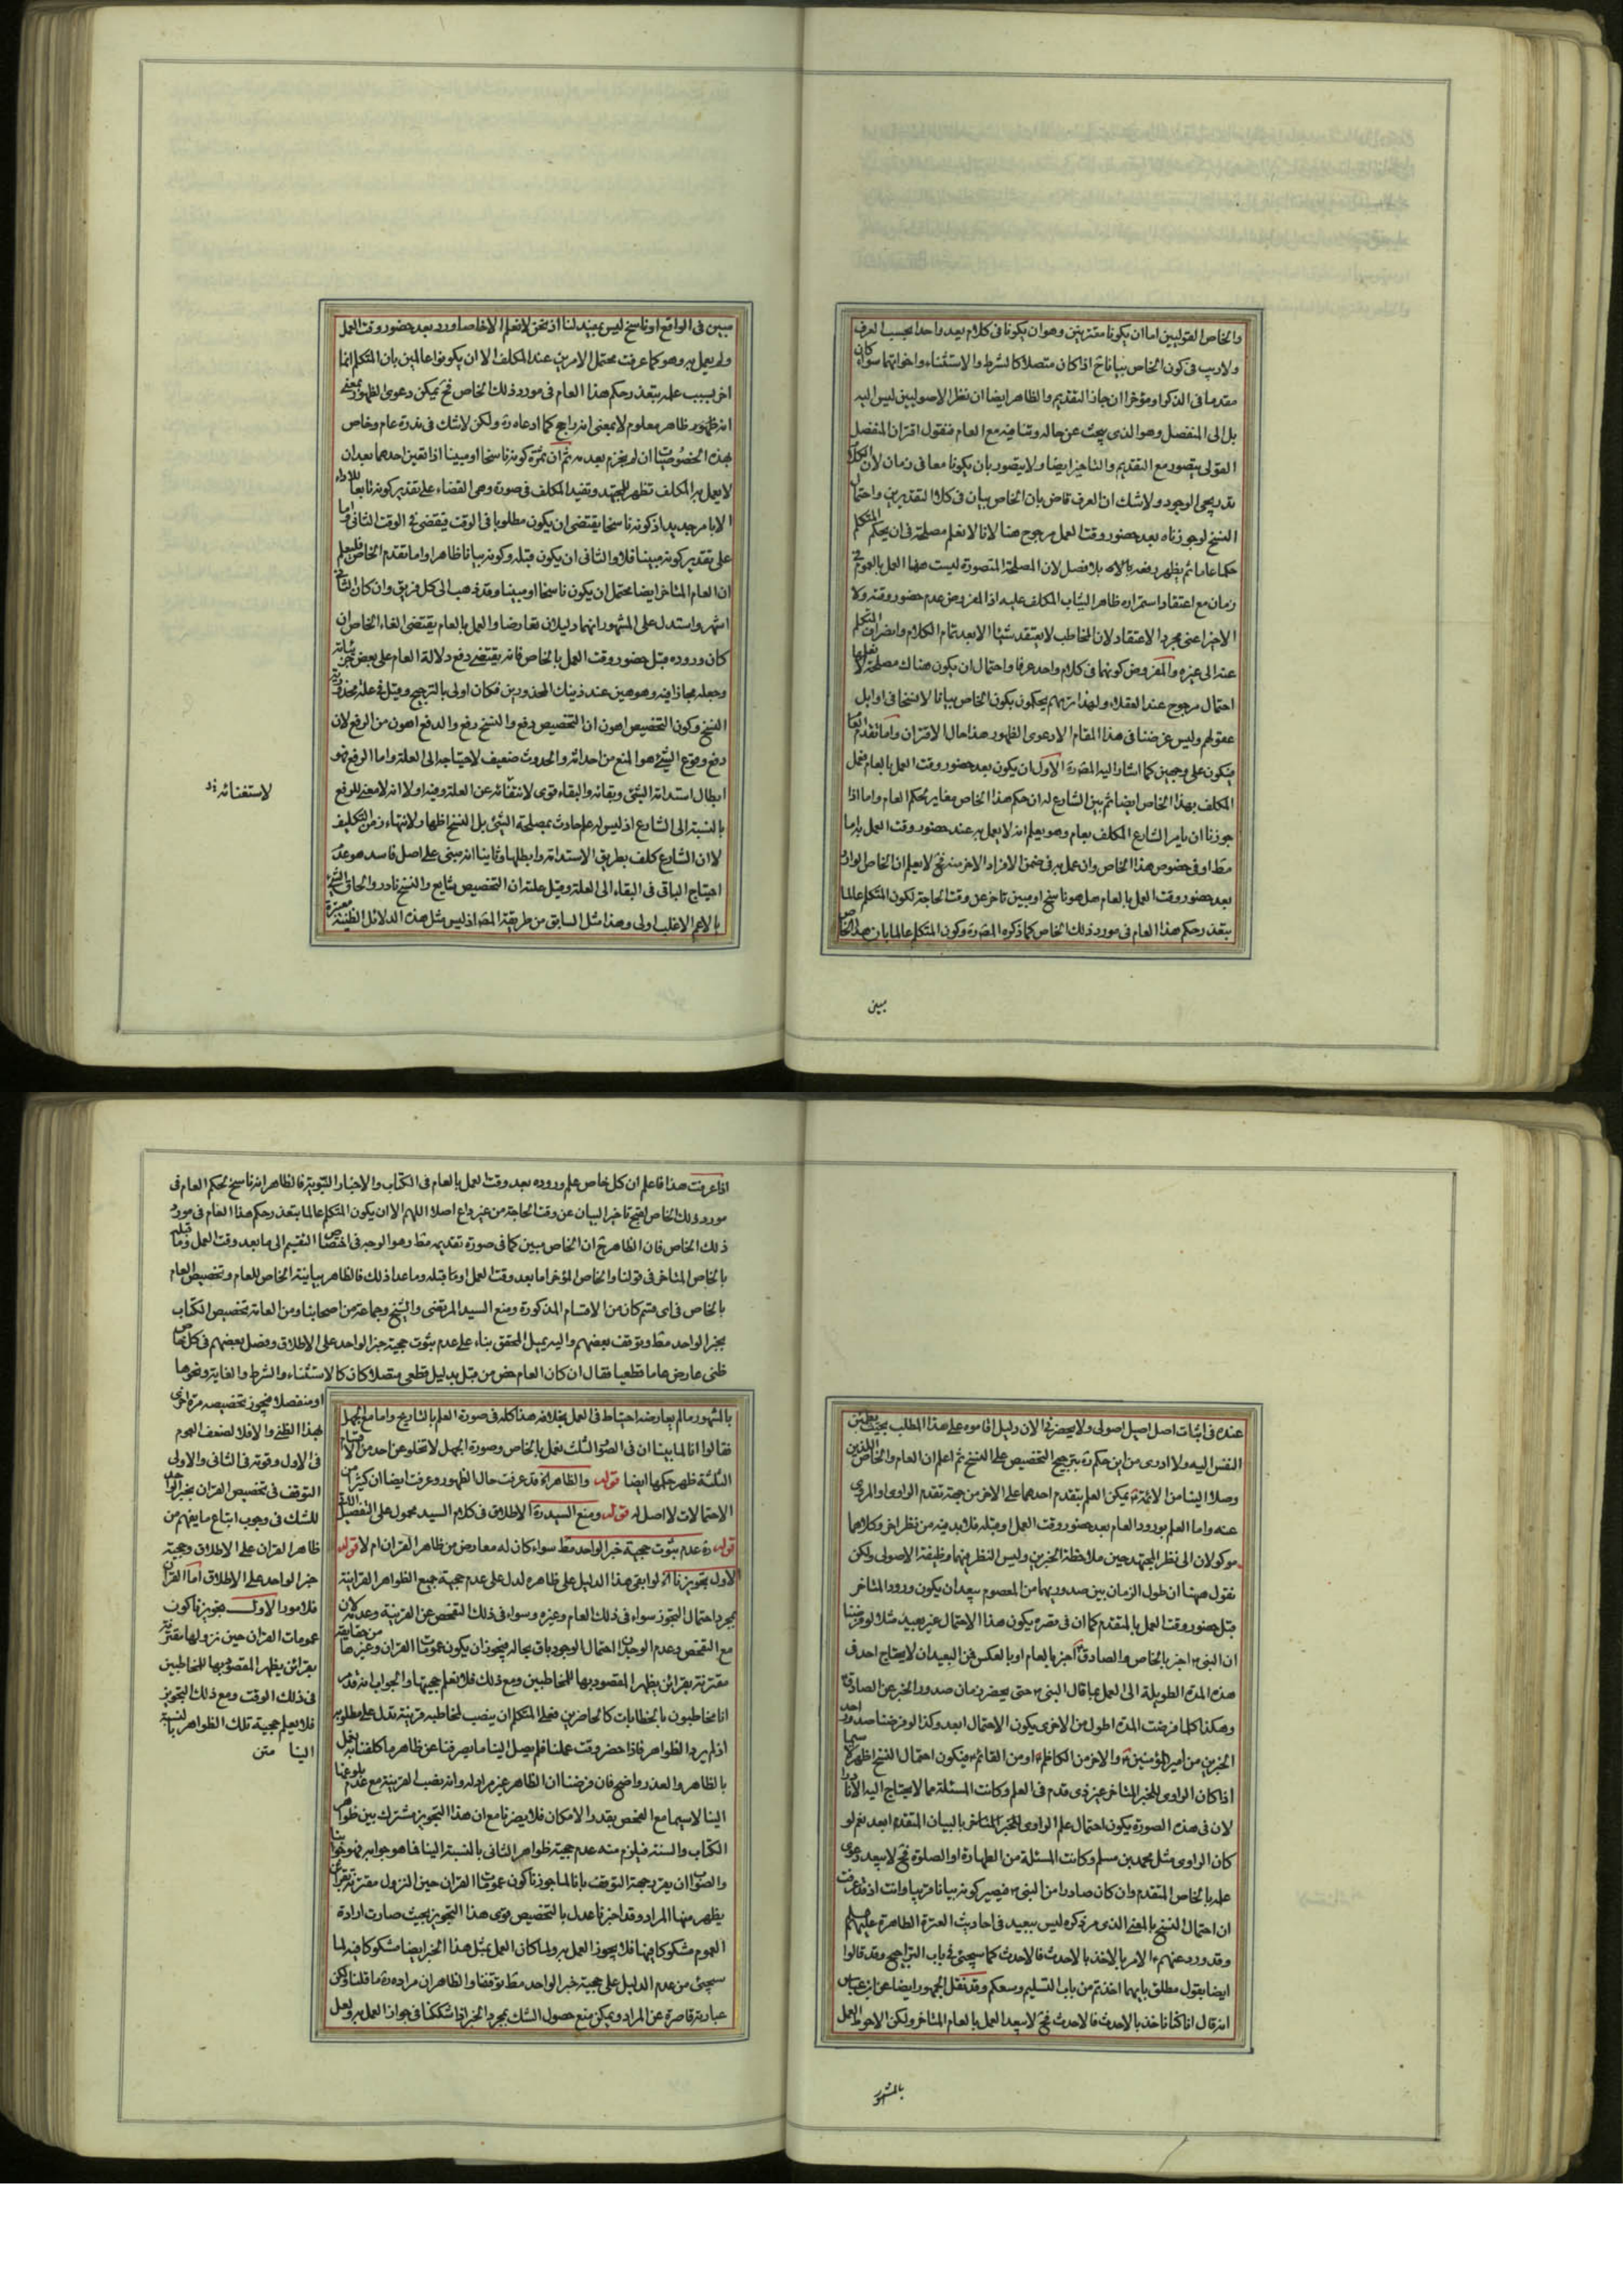 والخاص القوليين اما ان يكونا مقترنين وهو ان يكونا فى كلام يعد واحدا بحسب العرف
ولا ريب فى كون الخاص بيانا ح اذا كان متصلا كالشرط والاستثناء واخواتهما سواء كان
مقدما فى الذكر او مؤخرا ان جاز التقديم والظاهر ايضا ان نظر الاصوليين ليس اليه
بل الى المنفصل وهو الذى يبحث عن حاله وتنافيه مع العام فنقول اقتران المنفصل
القولى يتصور مع التقديم والتاخير ايضا ولا يتصور بان يكونا معا فى زمان لان الكلام
تدريجى الوجود ولا شك ان العرف قاض بان الخاص بيان فى كلا التقديرين واحتمال
النسخ لو جوزناه بعد حضور وقت العمل مرجوح هنا لانا لا نعلم مصلحة فى ان يحكم المتكلم
حكما عاما ثم يظهر رفعه بالاه بلا فصل لان المصلحة المتصورة ليست ههنا العمل بالعموم فى
زمان مع اعتقاد استمراره ظاهرا ليثاب المكلف عليه اذ المفروض عدم حضور وقته ولا
الاخير اعنى مجرد الاعتقاد لان المخاطب لا يعتقد شيئا الا بعد تمام الكلام وانصراف المتكلم
عنه الى غيره والمفروض كونهما فى كلام واحد عرفا واحتمال ان يكون هناك مصلحة لا نعلمها
احتمال مرجوح عند العقلاء ولهذا تريهم يحكمون بكون الخاص بيانا لا نسخا فى اوايل
عقولهم وليس غرضنا فى هذا المقام الا دعوى الظهور هذا حال الاقتران واما تقدم العام
فيكون على وجهين كما اشار اليه المصره الاول ان يكون بعد حضور وقت العمل بالعام فعمل
المكلف بهذا الخاص ايضا ثم بين الشارع له ان حكم هذا الخاص مغاير لحكم العام واما اذا
جوزنا ان يامر الشارع المكلف بعام وهو يعلم انه لا يعمل به عند حضور وقت العمل به اما
مط او فى خصوص هذا الخاص وان عمل به فى ضمن الافراد الاخر منه فح لا يعلم ان الخاص الوارد
بعد حضور وقت العمل بالعام هل هو ناسخ او مبين تاخر عن وقت الحاجة لكون المتكلم عالما
بتعذر حكم هذا العام فى مورد ذلك الخاص كما ذكره المصره وكون المتكلم عالما بان هذا الخاص
مبين
مبين فى الواقع او ناسخ ليس بمفيد لنا اذ نحن لا نعلم الا خاصا ورد بعد حضور وقت العمل
ولم يعمل به وهو كما عرفت محتمل الامرين عند المكلف الا ان يكونوا عالمين بان المتكلم انما
اخر بسبب علمه بتعذر حكم هذا العام فى مورد ذلك الخاص فح يمكن دعوى الظهور بمعنى
انه ظهور ظاهر معلوم لا بمعنى انه راجح كما ادعاه ره ولكن لا شك فى ندرة عام وخاص
بهذه الخصوصيات ان لم يجزم بعدمه ثم ان ثمرة كونه ناسخا او مبينا اذا تعين احدهما بعد ان
لا يعمل به المكلف تظهر للمجتهد وتفيد المكلف فى صورة وهى القضاء على تقدير كونه تابعا للاداء
لا بامر جديد اذ كونه ناسخا يقتضى ان يكون مطلوبا فى الوقت فيقضى فى الوقت الثانى واما
على تقدير كونه مبينا فلا والثانى ان يكون قبله وكونه بيانا ظاهر واما تقدم الخاص فليعلم
ان العام المتاخر ايضا محتمل ان يكون ناسخا او مبينا وقد ذهب الى كل فريق وان كان الثانى
اشهر واستدل على المشهور انهما دليلان تعارضا والعمل بالعام يقتضى الغاء الخاص ان
كان وروده قبل حضور وقت العمل بالخاص فانه يقتضى دفع دلالة العام على بعض جزئياته
وجعله مجازا فيه وهو هين عند ذينك المحذورين فكان اولى بالترجيح وقيل فى علة محذورية
النسخ وكون التخصيص اهون ان التخصيص دفع والنسخ رفع والدفع اهون من الرفع لان
دفع وقوع الشىء هو المنع من احداثه والحدوث ضعيف لاحتياجه الى العلة واما الرفع فهو
ابطال استدامة الشىء وبقائه والبقاء قوى لانتفائه عن العلة وفيه اولا انه لا معنى للرفع
بالنسبة الى الشارع اذ ليس له علم حادث بمصلحة الشىء بل النسخ اظهار لانتهاء زمن التكليف
لا ان الشارع كلف بطريق الاستدامة وابطلها وثانيا انه مبنى على اصل فاسد هو عدم
احتياج الباقى فى البقاء الى العلة وقيل علته ان التخصيص شايع والنسخ نادر والحاق الشىء
بالاعم الاغلب اولى وهذا مثل السابق من طريقة المصره اذ ليس مثل هذه الدلائل الظنية معتبرة
لاستغنائه
عنده فى اثبات اصل اصيل اصولى ولا يحضرنى الان دليل اقاموه على هذا المطلب بحيث يطمئن
النفس اليه ولا ادرى من اين حكم ره بترجيح التخصيص على النسخ ثم اعلم ان العام والخاص اللذين
وصلا الينا من الائمة يمكن العلم بتقدم احدهما على الاخر من جهة تقدم الراوى او المروى
عنه واما العلم بورود العام بعد حضور وقت العمل او قبله فلا بد فيه من نظر اخر وكلاهما
موكولان الى نظر المجتهد حين ملاحظة الخبرين وليس النظر فيهما وظيفة الاصولى ولكن
نقول ههنا ان طول الزمان بين صدوريهما من المعصوم يبعد ان يكون ورود المتاخر
قبل حضور وقت العمل بالمتقدم كما ان فى قصره يكون هذا الاحتمال غير بعيد مثلا لو فرضنا
ان النبى اخبر بالخاص والصادق اخبر بالعام او بالعكس فمن البعيد ان لا يحتاج احد فى
هذه المدة الطويلة الى العمل بما قال النبى حتى يحضر زمان صدور الخبر عن الصادق
وهكذا كلما فرضت المدة اطول من الاخرى يكون الاحتمال ابعد وكذا لو فرضنا صدور احد
الخبرين من امير المؤمنين والاخر من الكاظم او من القائم فيكون احتمال النسخ اظهر لا سيما
اذا كان الراوى للخبر المتاخر غير ذى قدم فى العلم وكانت المسئلة مما لا يحتاج اليه الا نادرا
لان فى هذه الصورة يكون احتمال علم الراوى للخبر المتاخر بالبيان المتقدم ابعد نعم لو
كان الراوى مثل محمد بن مسلم وكانت المسئلة من الطهارة او الصلوة فح لا يبعد دعوى
علمه بالخاص المتقدم وان كان صادرا من النبى فيصير كونه بيانا قريبا وانت اذ قد عرفت
ان احتمال النسخ بالمعنى الذى مر ذكره ليس ببعيد فى احاديث العترة الطاهرة عليهم
وقد ورد عنهم الامر بالاخذ بالاحدث فالاحدث كما سيجئ فى باب التراجيح وقد قالوا
ايضا بقول مطلق بايهما اخذتم من باب التسليم وسعكم وقد نقل الجمهور ايضا عن ابن عباس
انه قال انا كنا ناخذ بالاحدث فالاحدث فح لا يبعد العمل بالعام المتاخر ولكن الاحوط العمل
بالمشهور
اذا عرفت هذا فاعلم ان كل خاص علم وروده بعد وقت العمل بالعام فى الكتاب والاخبار النبوية فالظاهر انه ناسخ لحكم العام فى
مورد ذلك الخاص لقبح تاخير البيان عن وقت الحاجة من غير داع اصلا اللهم الا ان يكون المتكلم عالما بتعذر حكم هذا العام فى مورد
ذلك الخاص فان الظاهر ح ان الخاص مبين كما فى صورة تقديمه مط وهو الوجه فى اختصاص التقسيم الى ما بعد وقت العمل وما قبله
بالخاص المتاخر فى قولنا والخاص المؤخر اما بعد وقت العمل او ما قبله وما عدا ذلك فالظاهر بيانية الخاص للعام وتخصيص العام
بالخاص فى اى قسم كان من الاقسام المذكورة ومنع السيد المرتضى والشيخ وجماعة من اصحابنا ومن العامة تخصيص الكتاب
بخبر الواحد مط وتوقف بعضهم واليه يميل المحقق بناء على عدم ثبوت حجية خبر الواحد على الاطلاق وفصل بعضهم فى كل خاص
ظنى عارض عاما قطعيا فقال ان كان العام خص من قبل بدليل قطعى متصلا كان كالاستثناء والشرط والغاية ونحوها
او منفصلا فيجوز تخصيصه مرة اخرى
بهذا الظنى والا فلا لضعف العموم
فى الاول وقوته فى الثانى والاولى
التوقف فى تخصيص القران بخبر الواحد
للشك فى وجوب اتباع ما يفهم من
ظاهر القران على الاطلاق وحجية
خبر الواحد على الاطلاق اما القران
فلامور الاول تجويزنا كون
عمومات القران حين نزولها مقترنة
بقرائن يظهر المقصود بها للمخاطبين
فى ذلك الوقت ومع ذلك التجويز
فلا يعلم حجية تلك الظواهر بالنسبة
الينا متن
بالمشهور ما لم يعارضه احتياط فى العمل بخلافه هذا كله فى صورة العلم بالتاريخ واما مع الجهل
فقالوا انا لما بينا ان فى الصور الثلث نعمل بالخاص وصورة الجهل لا تخلو عن احد من الاقسام
الثلثة ظهر حكمها ايضا قوله والظاهر اه قد عرفت حال الظهور وعرفت ايضا ان كثيرا من
الاحتمالات لا اصل له قوله ومنع السيد ره الاطلاق فى كلام السيد محمول على التفصيل
قوله ره عدم ثبوت حجية خبر الواحد مط سواء كان له معارض من ظاهر القران ام لا قوله
الاول تجويزنا اه لو ابقى هذا الدليل على ظاهره لدل على عدم حجية جميع الظواهر القرانية
بمجرد احتمال التجوز سواء فى ذلك العام وغيره وسواء فى ذلك التفحص عن القرينة وعدمه لان
مع التفحص وعدم الوجدان احتمال الوجود باق بحاله فيجوز ان يكون عمومات القران وغيرها من حقايقه
مقترنة بقرائن يظهر المقصود بها للمخاطبين ومع ذلك فلا نعلم حجيتها والجواب انه قد مر
انا مخاطبون بالخطابات كالحاضرين فعلى المتكلم ان ينصب لمخاطبه قرينة تدل على مطلوبه
اذ لم يرد الظواهر فاذا حضر وقت عملنا فلم يصل الينا ما يصرفنا عن ظاهر ما كلفنا به نعمل
بالظاهر والعذر واضح فان فرضنا ان الظاهر غير مراد له وانه نصب لقرينة مع عدم بلوغها
الينا لا سيما مع الفحص بقدر الامكان فلا يضرنا مع ان هذا التجويز مشترك بين ظواهر
الكتاب والسنة فيلزم منه عدم حجية ظواهر الثانى بالنسبة الينا فما هو جوابه فهو جوابنا
والصواب ان يقرر حجة التوقف بانا لما جوزنا كون عمومات القران حين النزول مقترنة بقرائن
يظهر منها المراد وقد اخبرنا عدل بالتخصيص قوى هذا التجويز بحيث صارت ارادة
العموم مشكوكا فيها فلا يجوز العمل به ولما كان العمل بمثل هذا الخبر ايضا مشكوكا فيه لما
سيجئ من عدم الدليل على حجية خبر الواحد مط توقفنا والظاهر ان مراده ره ما قلنا ولكن
عبارته قاصرة عن المراد ويمكن منع حصول الشك بمجرد الخبر اذا شككنا فى جواز العمل به ولعل